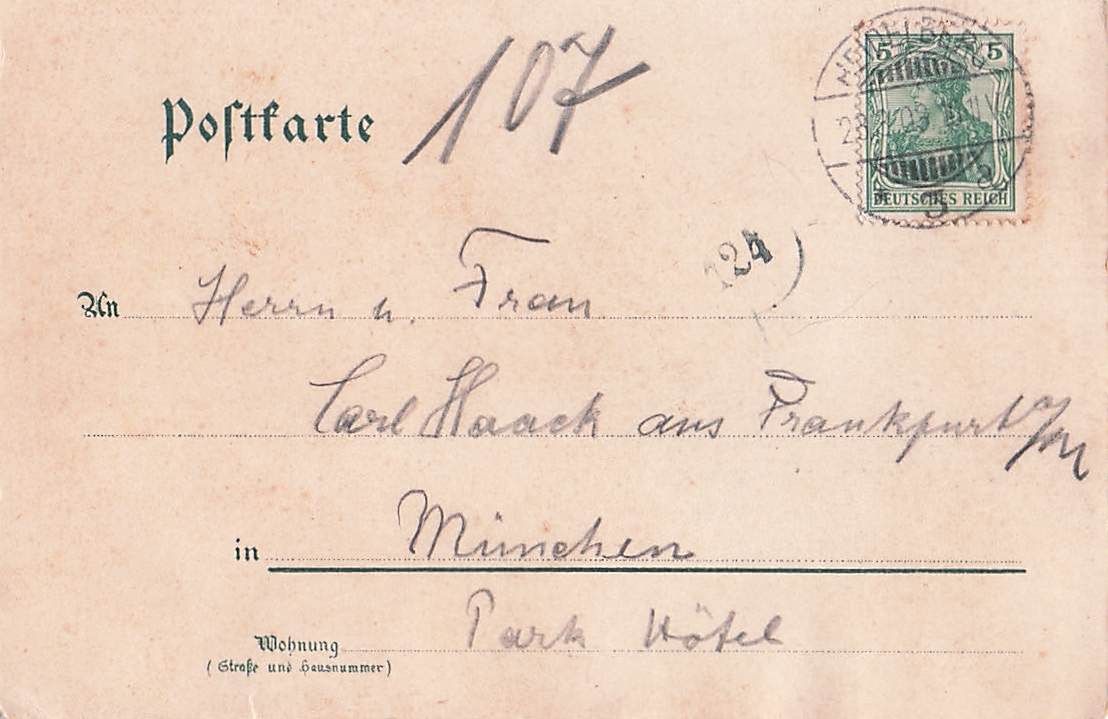 Postkarte
107
5 5
HEIDELBERG
DEUTSCHES REICH
3
24
An Herrn u. Frau
Carl Haack aus Frankfurt a/M
in München
Wohnung Park Hôtel
(Straße und Hausnummer)